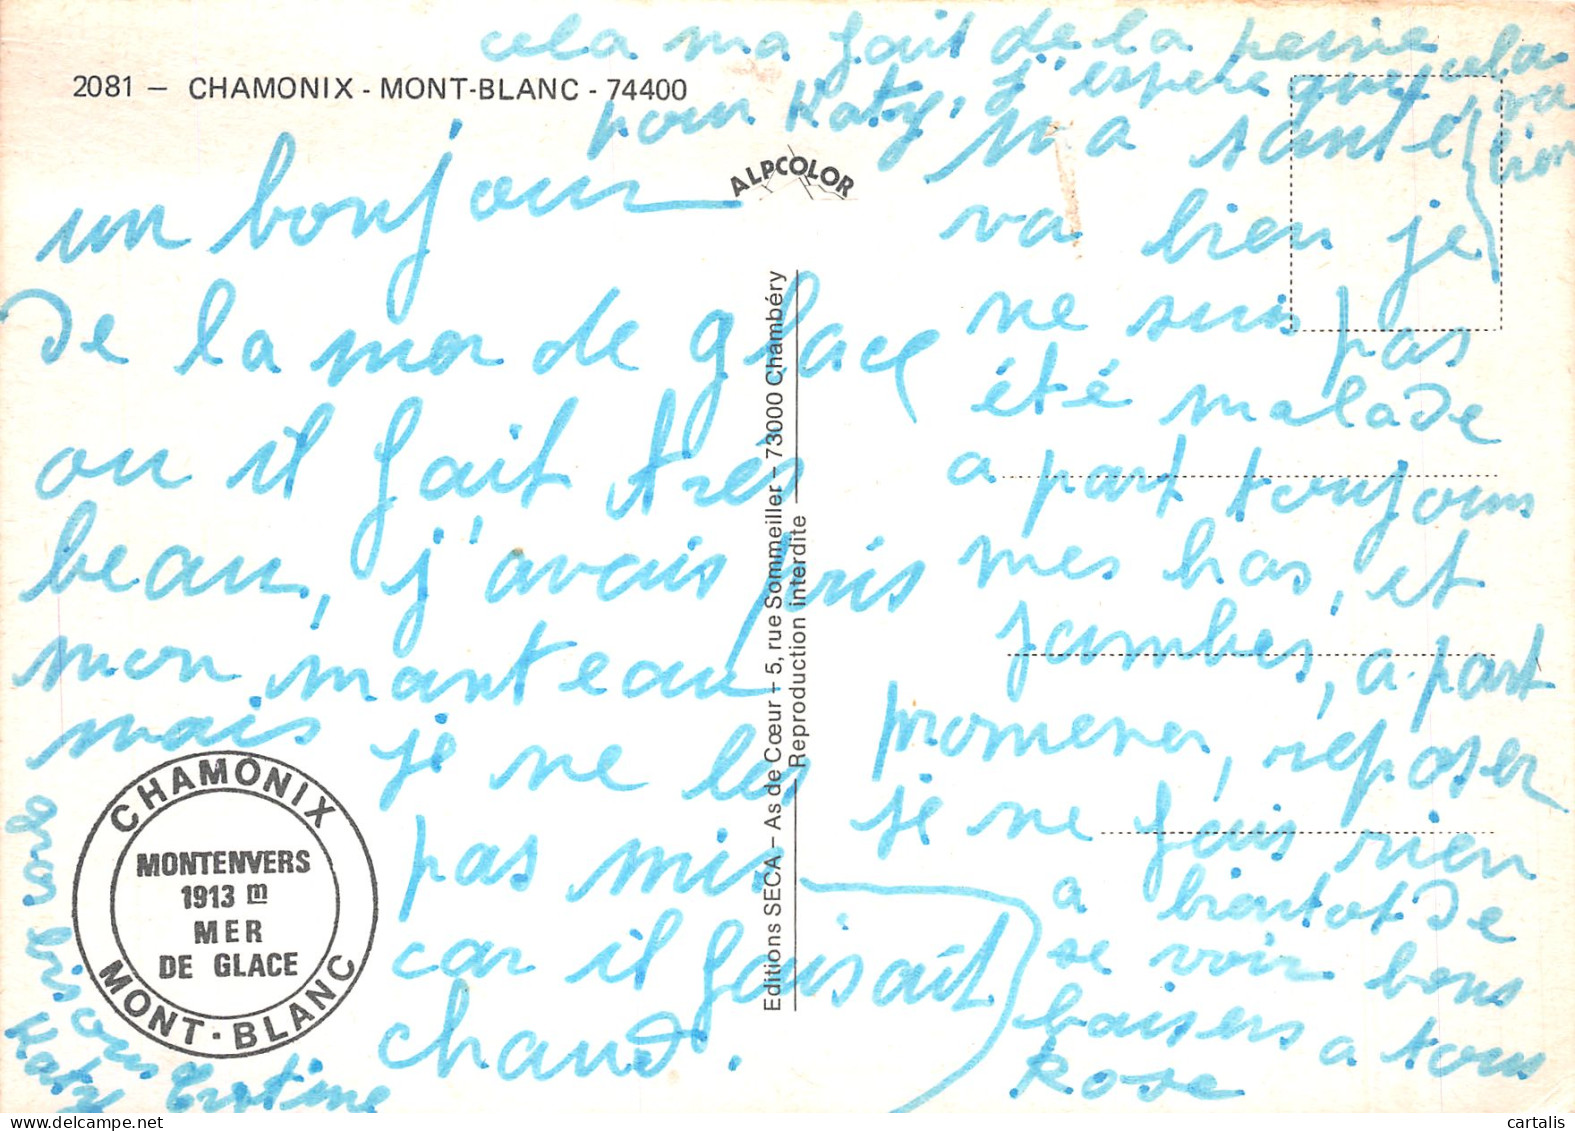 2081 — CHAMONIX - MONT-BLANC - 74400
ALPCOLOR
un bonjour
de la mer de glace
ou il fait trés
beau, j'avais pris
mon manteau
mais je ne les
pas mis
car il faisait
chaud.
cela ma fait de la peine
pour Katy, j'espere que cela
va
bien
ma santé
va bien je
ne suis pas
été malade
a part toujours
mes bras, et
jambes, a part
promener, reposer
je ne fais rien
a bientot de
se voir bons
baisers a tous
Rose
gros bisous
Katy
CHAMONIX
MONTENVERS
1913 m
MER
DE GLACE
MONT-BLANC
Editions SECA – As de Cœur – 5, rue Sommeiller – 73000 Chambéry
Reproduction interdite
cartalis